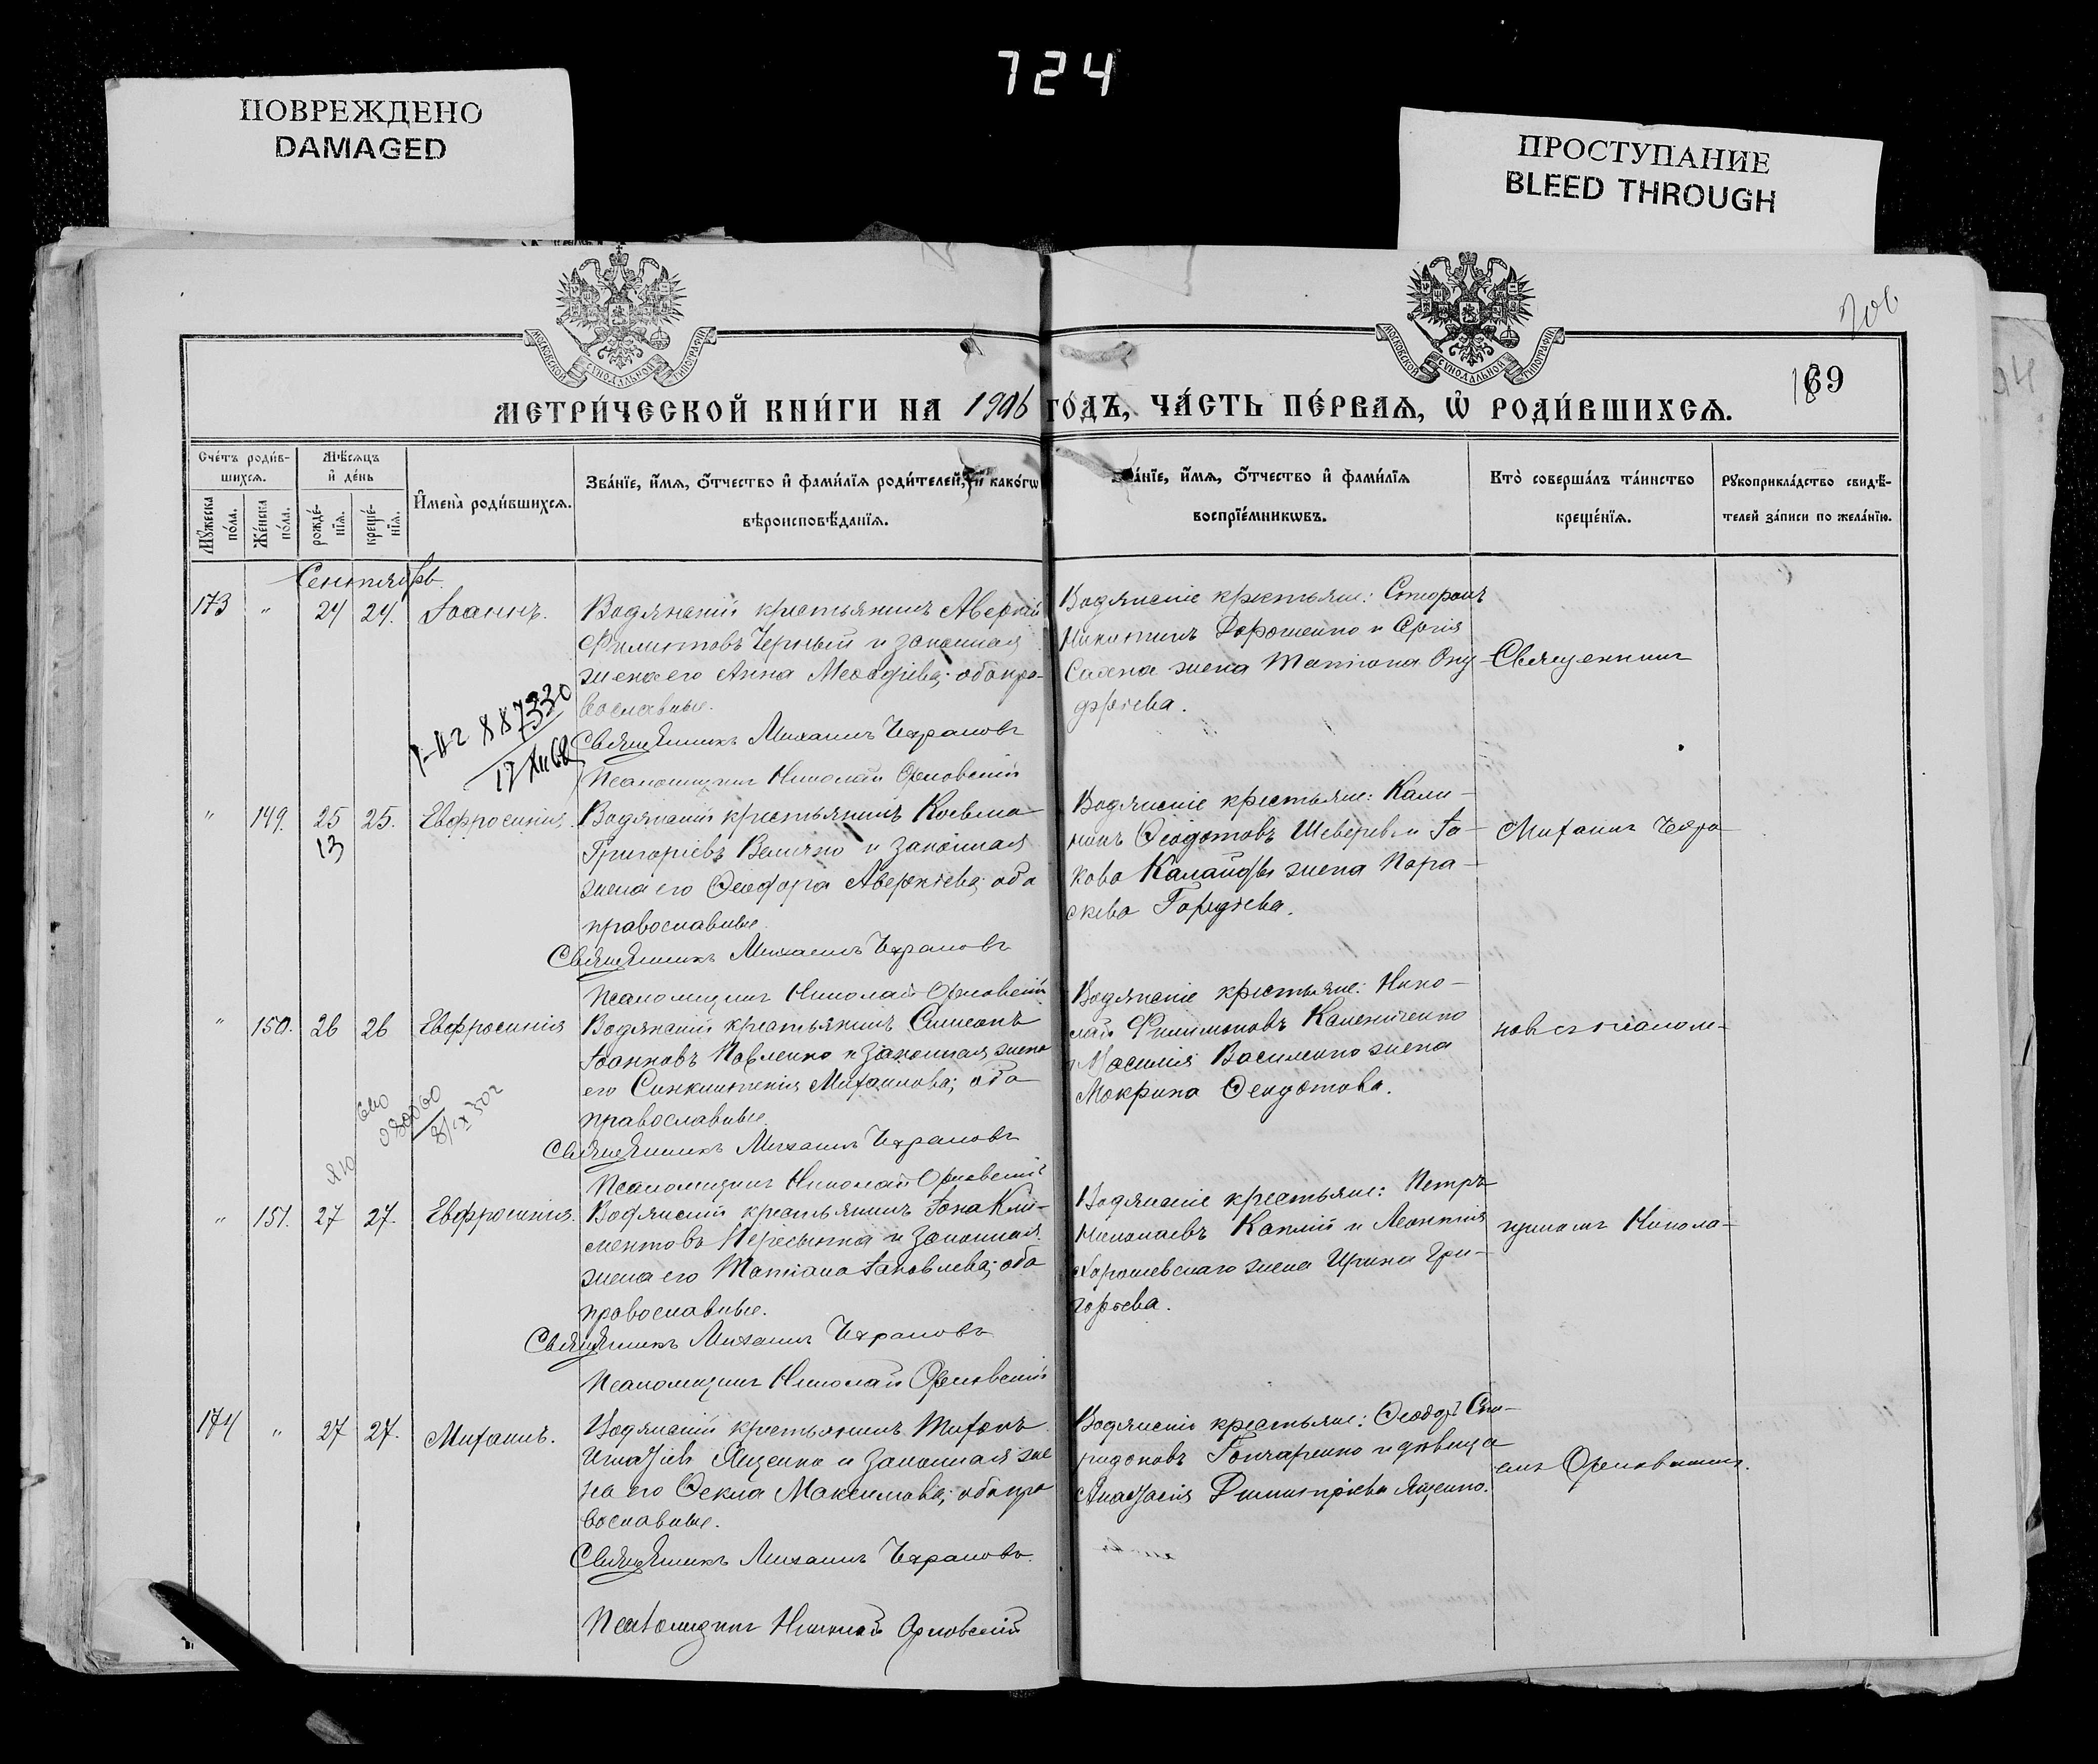 724
ПОВРЕЖДЕНО
DAMAGED
ПРОСТУПАНИЕ
BLEED THROUGH
МОСКОВСКОЙ СѴНОДАЛЬНОЙ ТИПОГРАФІИ
МОСКОВСКОЙ СѴНОДАЛЬНОЙ ТИПОГРАФІИ
306
169
МЕТРИ́ЧЕСКОЙ КНИ́ГИ НА 1906 ГО́ДЪ, ЧА́СТЬ ПЕ́РВАѦ, Ѡ҆ РОДИ́ВШИХСѦ.
Сче́тъ роди́вшихсѧ.
Мꙋ́жеска по́ла.
Же́нска по́ла.
Мѣ́сѧцъ и҆ де́нь
рожде́нїѧ.
креще́нїѧ.
И҆мена̀ роди́вшихсѧ.
Зва́нїе, и҆́мѧ, ѻ҆́тчество и҆ фами́лїѧ роди́телей, и҆ како́гѡ
вѣроисповѣ́данїѧ.
Зва́нїе, и҆́мѧ, ѻ҆́тчество и҆ фами́лїѧ
воспрїе́мникѡвъ.
Кто̀ соверша́лъ та́инство
креще́нїѧ.
Рꙋкоприкла́дство свидѣ́телей за́писи по жела́нїю.
Сентябрь.
173 " 24 24. Іоаннъ.
Водянскій крестьянинъ Аверкій
Филиповъ Черный и законная
жена его Анна Меѳодіева; оба пра-
вославные.
Священникъ Михаилъ Чепрановъ
Псаломщикъ Николай Орловскій
Водянскіе крестьяне:
Никитинъ Дорошенко и Сергія
жена Татіана Ону
фріева.
Священникъ
887330
17 XII 68
" 149. 25 25. Евфросинія.
13
Водянскій крестьянинъ Косьма
Григоріевъ Величко и законная
жена его Ѳеодора Аверкіева; оба
православные.
Священникъ Михаилъ Чепрановъ
Псаломщикъ Николай Орловскій
Водянскіе крестьяне: Кали-
никъ Ѳеодотовъ и Іа-
кова Калайды жена Пара-
скева Гордіева.
Михаилъ Чепра-
" 150. 26 26 Евфросинія
Водянскій крестьянинъ Симеонъ
Іоанновъ Павленко и законная жена
его Синклитикія Михаилова; оба
православные.
Священникъ Михаилъ Чепрановъ
Псаломщикъ Николай Орловскій
Водянскіе крестьяне: Нико-
лай Филимоновъ Калениченко
и Василія Василенко жена
Мокрина Ѳеодотова.
новъ съ псалом-
" 151. 27 27. Евфросинія.
Водянскій крестьянинъ Іона Кли-
ментовъ Пересыпка и законная
жена его Татіана Іаковлева; оба
православные.
Священникъ Михаилъ Чепрановъ
Псаломщикъ Николай Орловскій
Водянскіе крестьяне: Петръ
Николаевъ Каплій и Леонтія
Харошевскаго жена Ирина Гри-
горьева.
щикомъ Никола-
174 " 27 27. Михаилъ.
Водянскій крестьянинъ Тихонъ
Игнатіевъ Яценко и законная же
на его Ѳекла Максимова; оба пра
вославные.
Священникъ Михаилъ Чепрановъ.
Псаломщикъ Николай Орловскій
Водянскіе крестьяне: Ѳеодоръ Спи-
ридоновъ Гончаренко и дѣвица
Анастасія Димитріева Яценко.
емъ Орловскимъ.